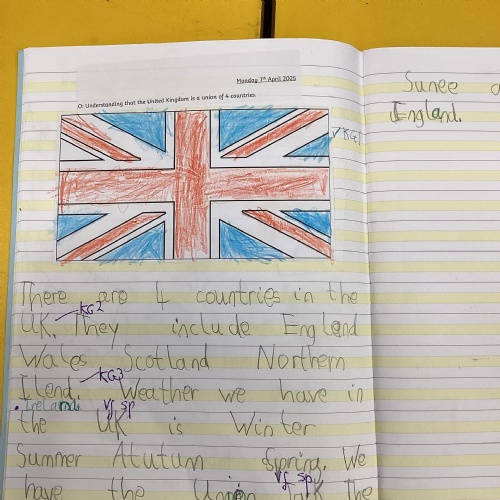 Monday 7th April 2025
O: Understanding that the United Kingdom is a union of 4 countries.
Sunee
England.
✓ KG1
There are 4 countries in the
KG2
UK. They include England
Wales Scotland Northern
KG3
Ilend. Weather we have in
• Ireland. vf sp
the UK is Winter
Summer Atutum Spring. We
vf sp
have the Union The